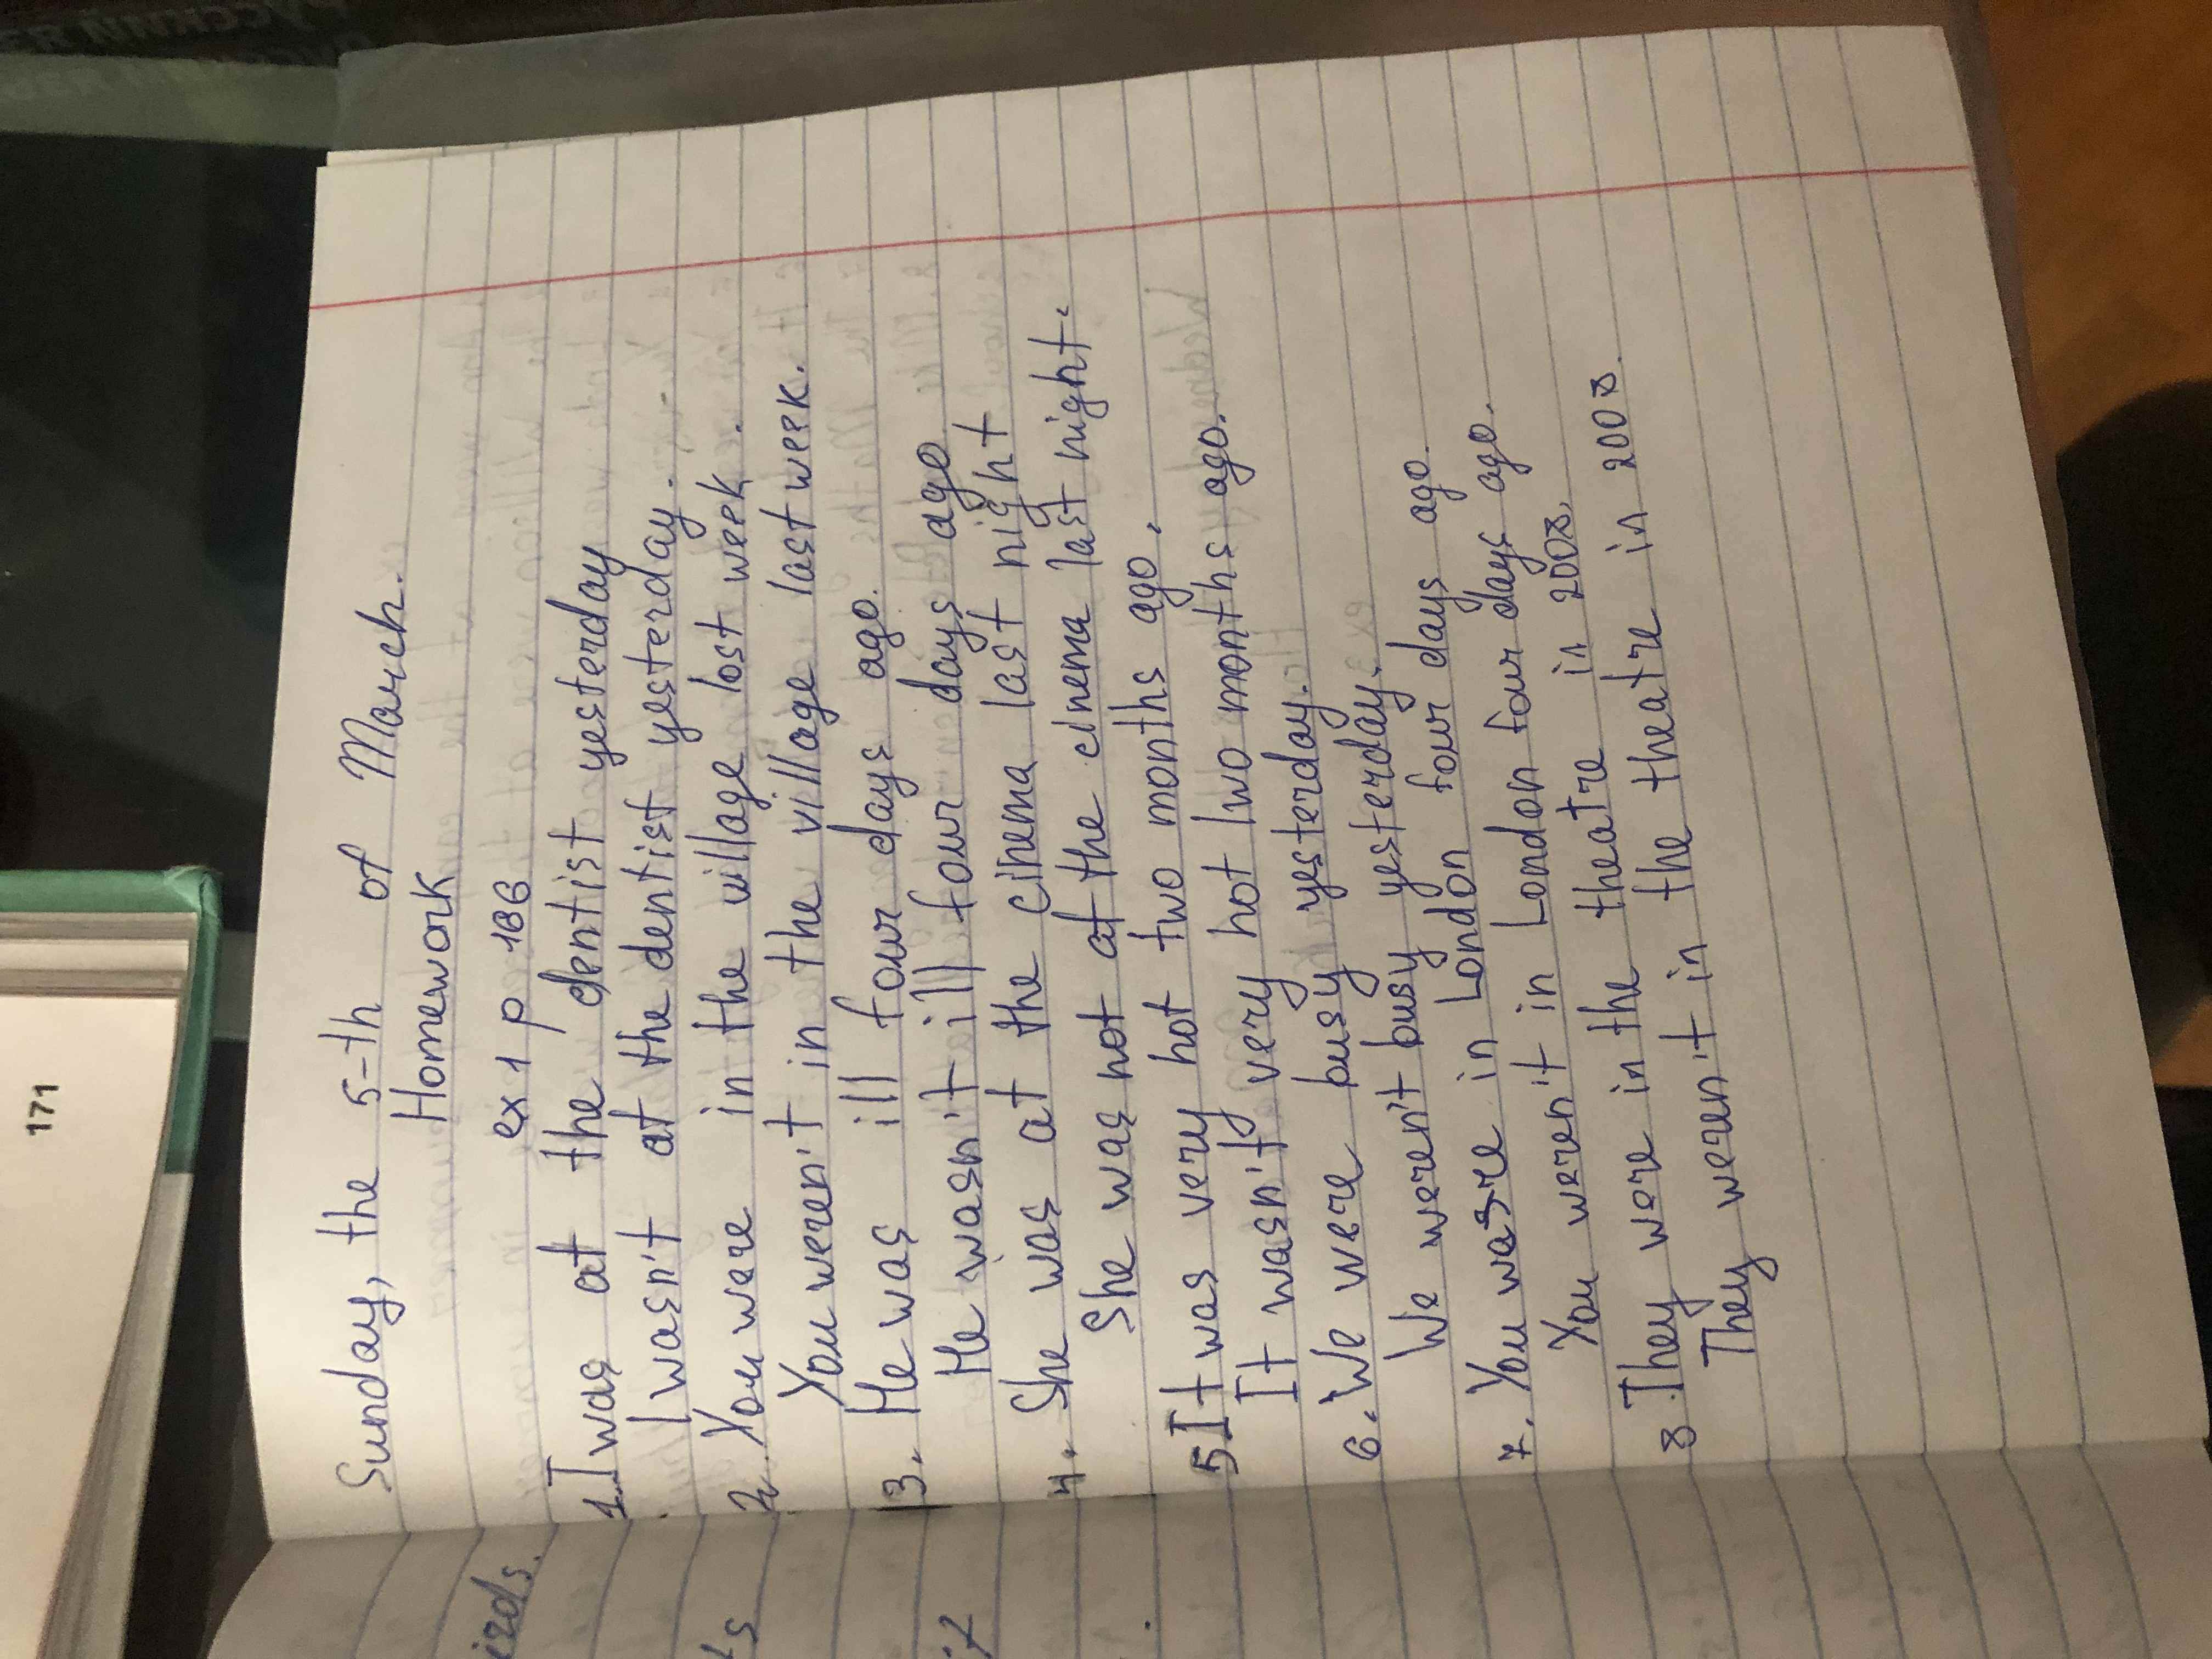 Sunday, the 5-th of March.
Homework
ex 1 p 186
1. I was at the dentist yesterday
I wasn't at the dentist yesterday.
2. You were in the village lost week.
You weren't in the village last week.
3. He was ill four days ago.
He wasn't ill four days ago
4. She was at the cinema last night
She was not at the cinema last night.
5 It was very hot two months ago.
It wasn't very hot two months ago.
6. We were busy yesterday.
We weren't busy yesterday.
7. You were in London four days ago.
You weren't in London four days ago.
8 They were in the theatre in 2008.
They weren't in the theatre in 2008.
171
irds.
's